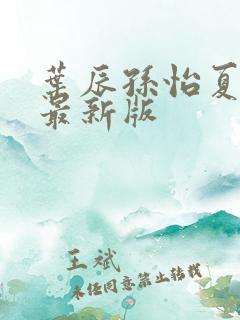 叶辰孙怡夏
最新版
王斌
未经同意禁止转载